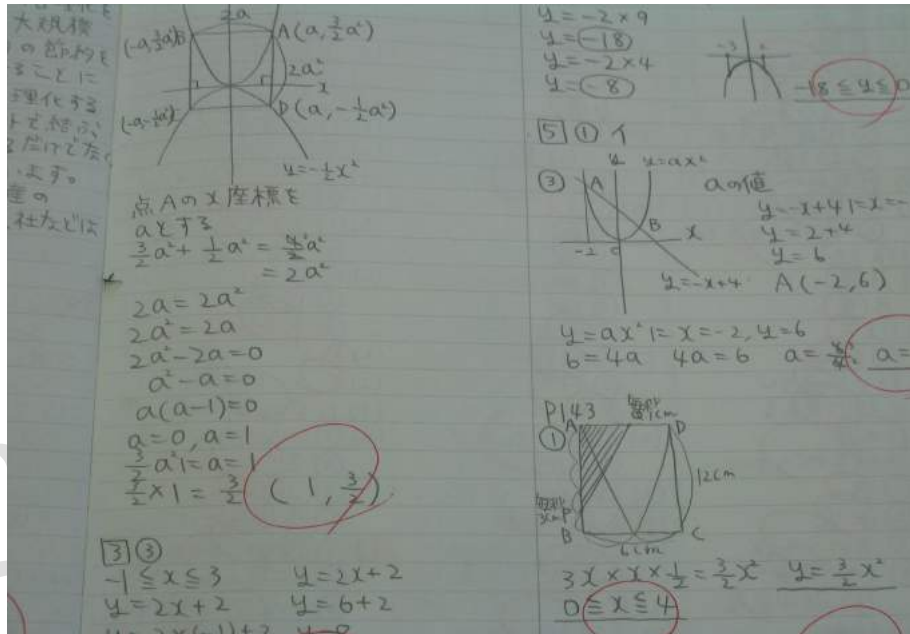 大規模
の節約を
ることに
理化する
トで結ぶ
るだけでなく
います。
産の
社などには
2a
(-a, 3/2a²)B
A(a, 3/2a²)
2a²
x
(-a, -1/2a²)
D(a, -1/2a²)
y=-1/2x²
点Aのx座標を
aとする
3/2a²+1/2a²=4/2a²
=2a²
2a=2a²
2a²=2a
2a²-2a=0
a²-a=0
a(a-1)=0
a=0, a=1
3/2a²にa=1
3/2×1=3/2 (1, 3/2)
3 ③
-1≦x≦3 y=2x+2
y=2x+2 y=6+2
y=-2×9
y=-18
y=-2×4
y=-8
-18≦y≦0
5 ① イ
③ y y=ax²
A aの値
B x
-2
y=-x+4にx=-
y=2+4
y=6
y=-x+4 A(-2,6)
y=ax²にx=-2, y=6
6=4a 4a=6 a=
a=
P143 毎秒1cm
① A D
12cm
毎秒3cm P
B C
6cm
3x×x×1/2=3/2x² y=3/2x²
0≦x≦4